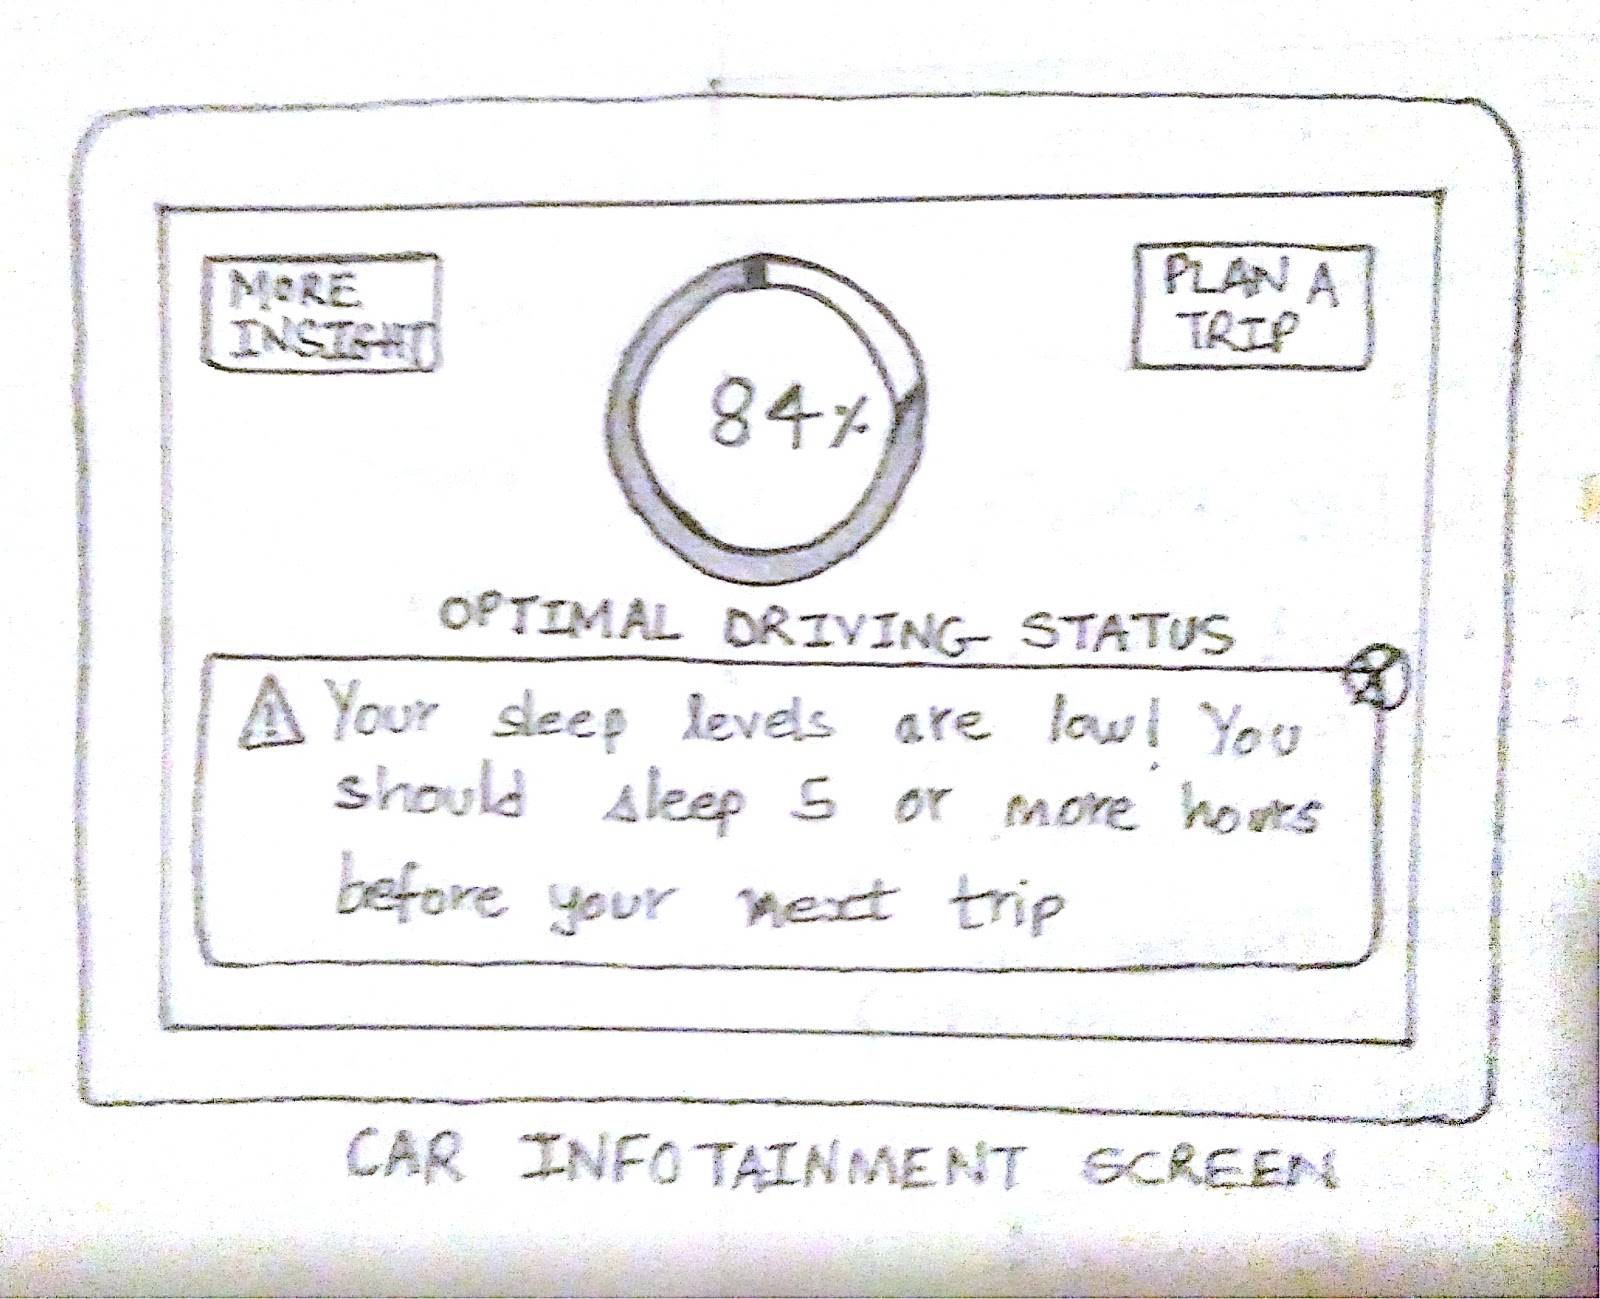 MORE
INSIGHT
PLAN A
TRIP
84%
OPTIMAL DRIVING STATUS
Your sleep levels are low! You
should sleep 5 or more hours
before your next trip
CAR INFOTAINMENT SCREEN